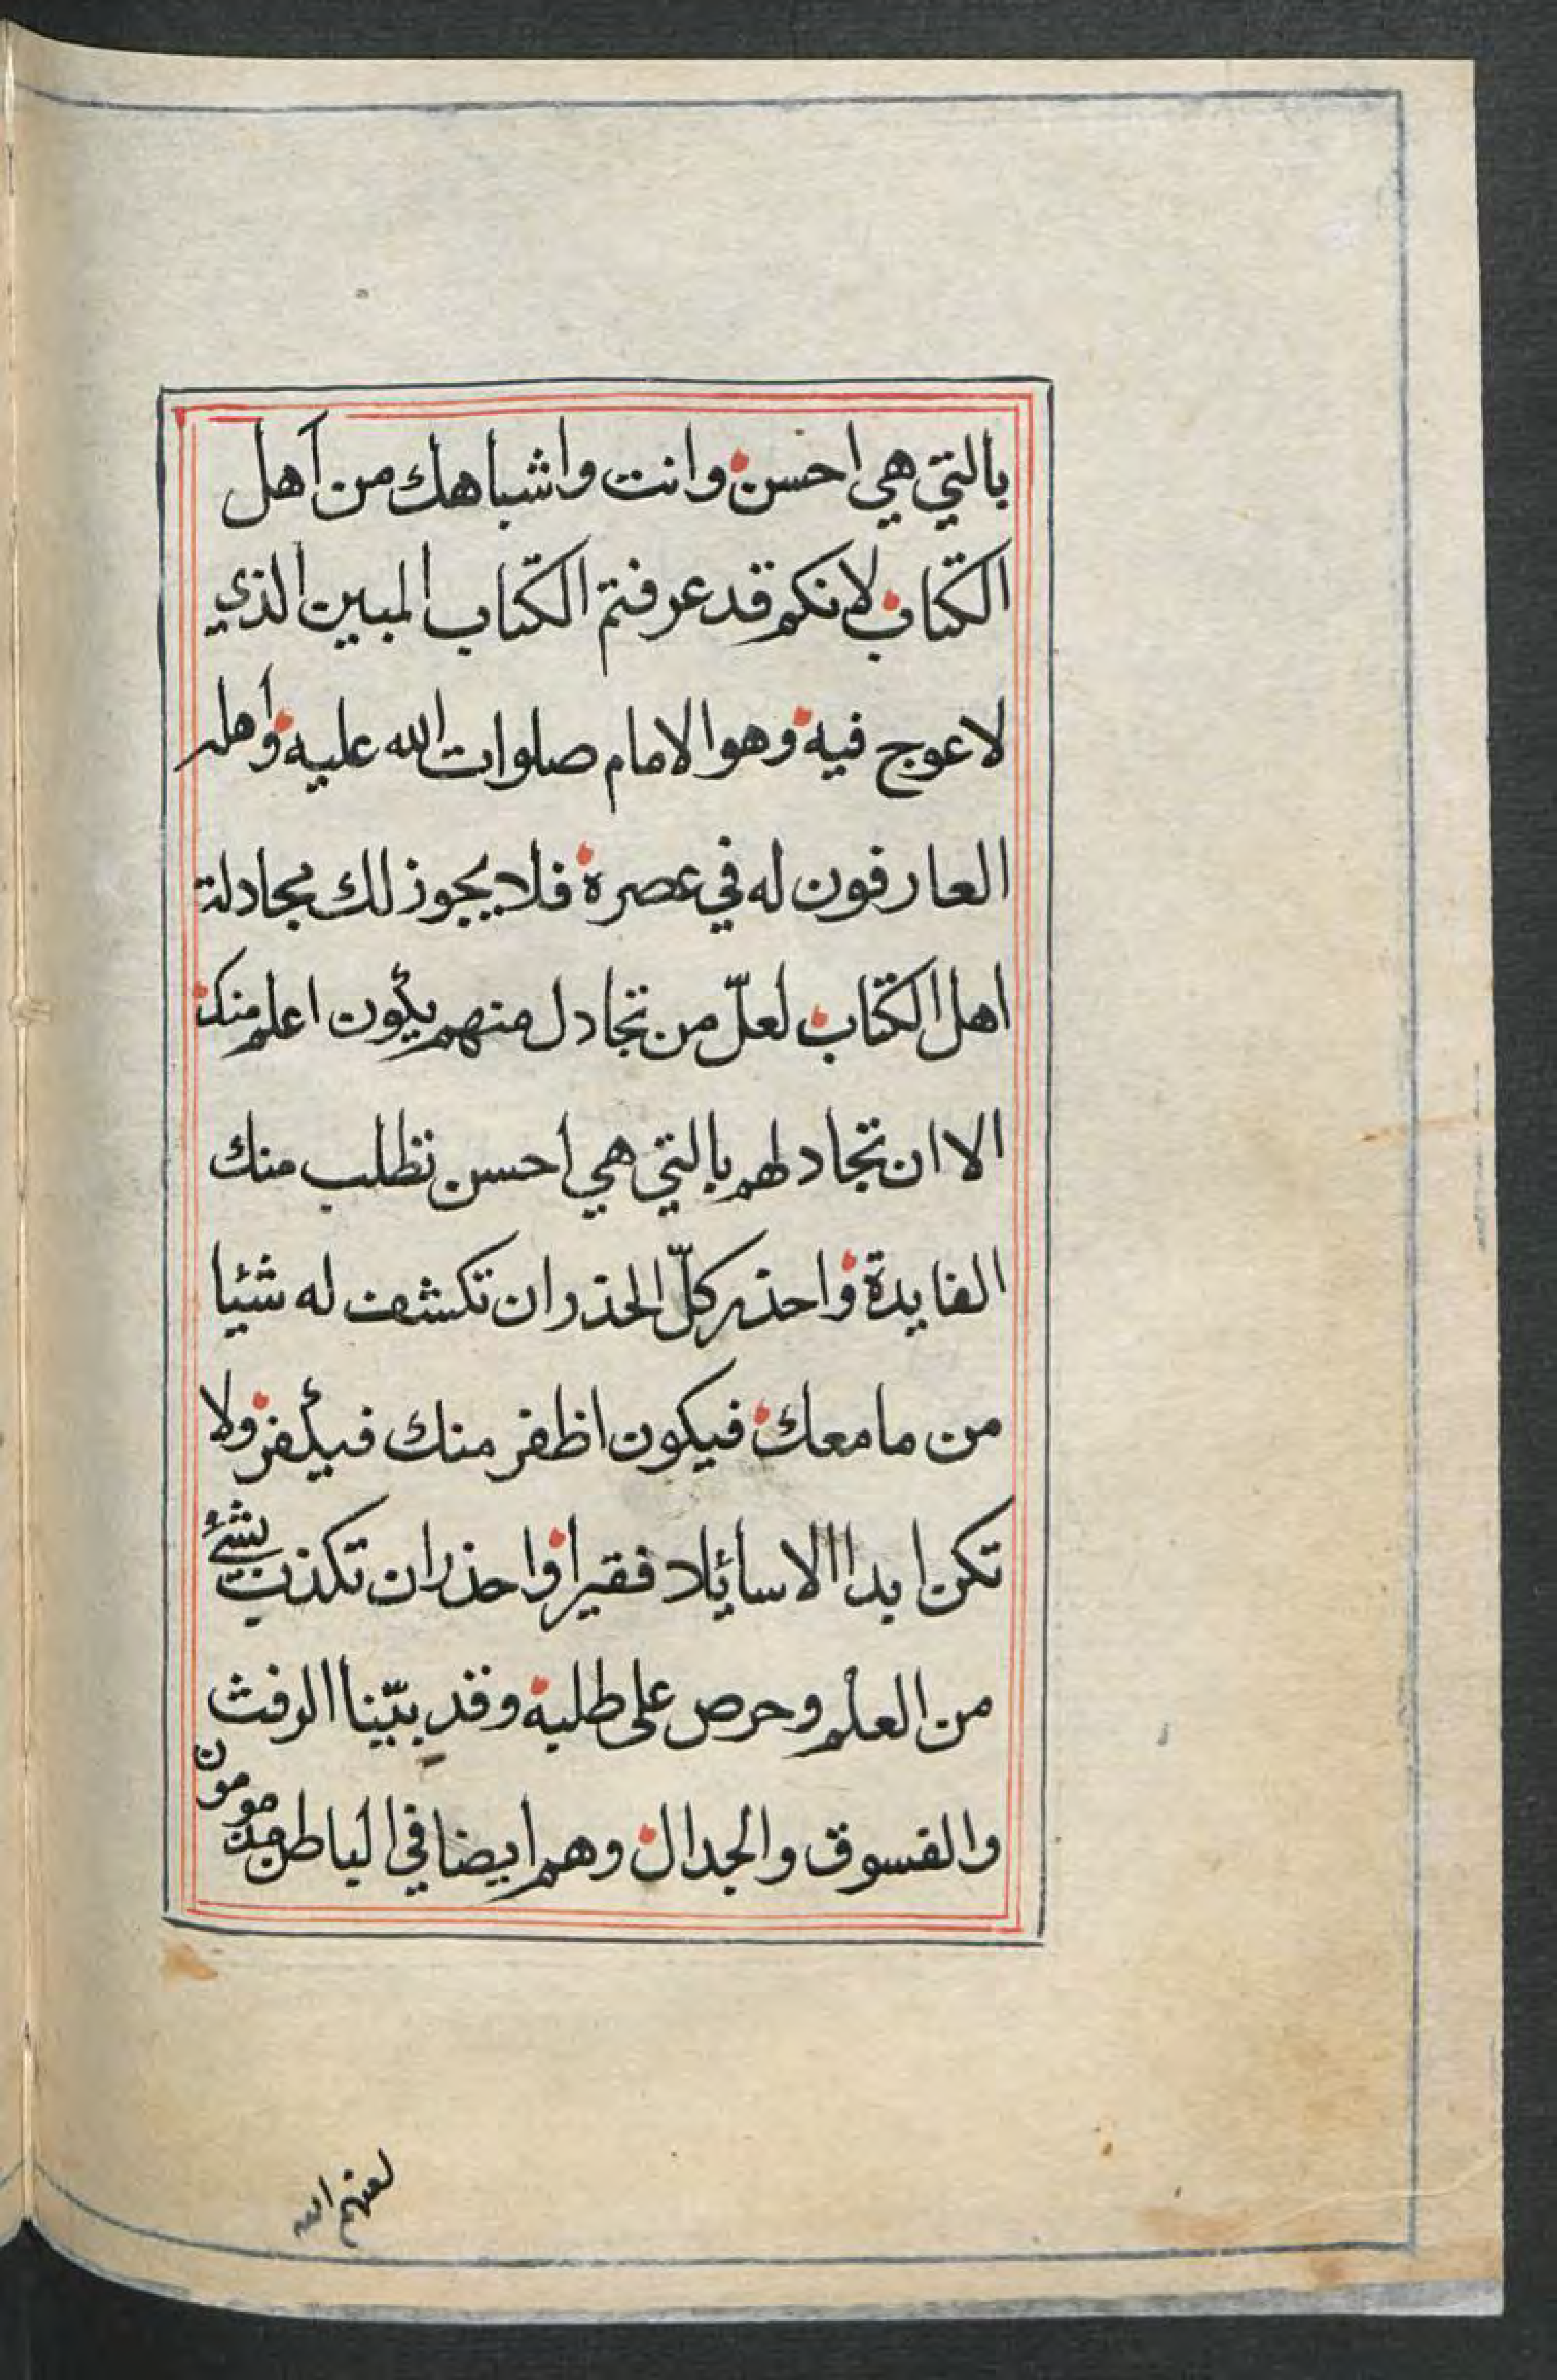 بالتي هي احسن وانت واشباهك من اهل
الكتاب لانكم قد عرفتم الكتاب المبين الذي
لا عوج فيه وهو الامام صلوات الله عليه واهله
العارفون له في عصره فلا يجوز لك مجادلة
اهل الكتاب لعلّ من تجادل منهم يكون اعلم منك
الا ان تجادلهم بالتي هي احسن تطلب منك
الفايدة واحذر كلّ الحذر ان تكشف له شئيا
من ما معك فيكون اظفر منك فيكفر ولا
تكن ابدا الا سائلا فقيرا واحذر ان تكذب بشئ
من العلم وحرص على طلبه وقد بيّنا الرفث
والفسوق والجدال وهم ايضا في الباطن
لعنهم الله